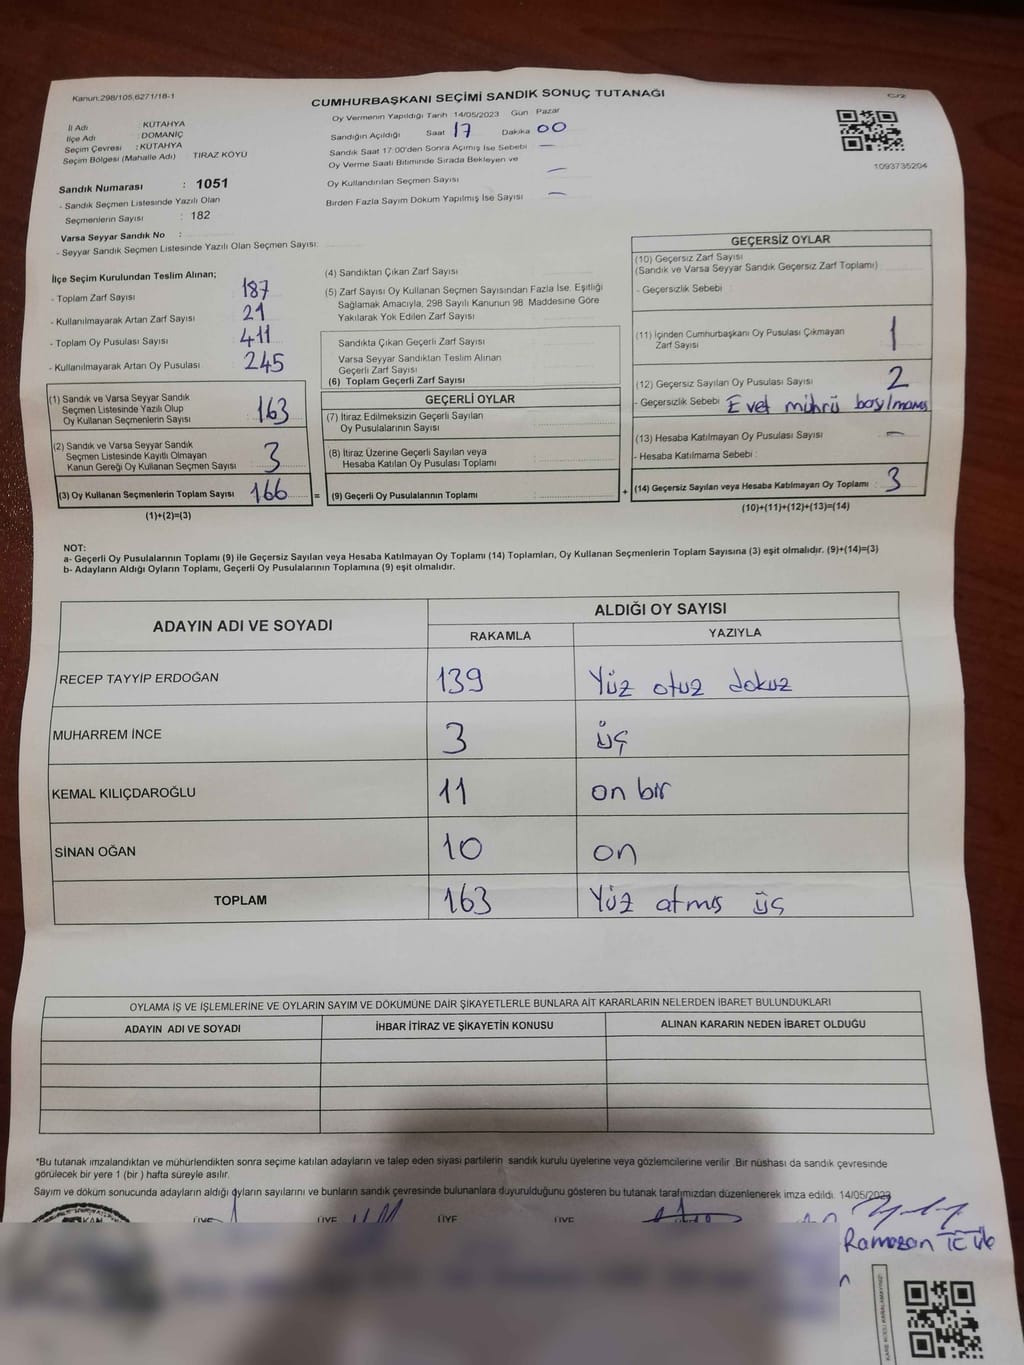 Kanun:298/105,6271/18-1
CUMHURBAŞKANI SEÇİMİ SANDIK SONUÇ TUTANAĞI
C/2
İl Adı : KÜTAHYA
İlçe Adı : DOMANİÇ
Seçim Çevresi : KÜTAHYA
Seçim Bölgesi (Mahalle Adı) TIRAZ KÖYÜ
Sandık Numarası : 1051
- Sandık Seçmen Listesinde Yazılı Olan
Seçmenlerin Sayısı : 182
Varsa Seyyar Sandık No :
- Seyyar Sandık Seçmen Listesinde Yazılı Olan Seçmen Sayısı:
Oy Vermenin Yapıldığı Tarih 14/05/2023 Gün Pazar
Sandığın Açıldığı Saat 17 Dakika 00
Sandık Saat 17:00'den Sonra Açmış İse Sebebi —
Oy Verme Saati Bitiminde Sırada Bekleyen ve
Oy Kullandırılan Seçmen Sayısı —
Birden Fazla Sayım Döküm Yapılmış İse Sayısı —
1093735204
İlçe Seçim Kurulundan Teslim Alınan;
- Toplam Zarf Sayısı 187
- Kullanılmayarak Artan Zarf Sayısı 21
- Toplam Oy Pusulası Sayısı 411
- Kullanılmayarak Artan Oy Pusulası 245
(1) Sandık ve Varsa Seyyar Sandık
Seçmen Listesinde Yazılı Olup
Oy Kullanan Seçmenlerin Sayısı 163
(2) Sandık ve Varsa Seyyar Sandık
Seçmen Listesinde Kayıtlı Olmayan
Kanun Gereği Oy Kullanan Seçmen Sayısı 3
(3) Oy Kullanan Seçmenlerin Toplam Sayısı 166 =
(1)+(2)=(3)
(4) Sandıktan Çıkan Zarf Sayısı
(5) Zarf Sayısı Oy Kullanan Seçmen Sayısından Fazla İse, Eşitliği
Sağlamak Amacıyla, 298 Sayılı Kanunun 98. Maddesine Göre
Yakılarak Yok Edilen Zarf Sayısı
Sandıkta Çıkan Geçerli Zarf Sayısı
Varsa Seyyar Sandıktan Teslim Alınan
Geçerli Zarf Sayısı
(6) Toplam Geçerli Zarf Sayısı
GEÇERLİ OYLAR
(7) İtiraz Edilmeksizin Geçerli Sayılan
Oy Pusulalarının Sayısı
(8) İtiraz Üzerine Geçerli Sayılan veya
Hesaba Katılan Oy Pusulası Toplamı
(9) Geçerli Oy Pusulalarının Toplamı : +
GEÇERSİZ OYLAR
(10) Geçersiz Zarf Sayısı
(Sandık ve Varsa Seyyar Sandık Geçersiz Zarf Toplamı)
- Geçersizlik Sebebi :
(11) İçinden Cumhurbaşkanı Oy Pusulası Çıkmayan
Zarf Sayısı 1
(12) Geçersiz Sayılan Oy Pusulası Sayısı 2
- Geçersizlik Sebebi : Evet mührü basılmamış
(13) Hesaba Katılmayan Oy Pusulası Sayısı —
- Hesaba Katılmama Sebebi :
(14) Geçersiz Sayılan veya Hesaba Katılmayan Oy Toplamı : 3
(10)+(11)+(12)+(13)=(14)
NOT:
a- Geçerli Oy Pusulalarının Toplamı (9) ile Geçersiz Sayılan veya Hesaba Katılmayan Oy Toplamı (14) Toplamları, Oy Kullanan Seçmenlerin Toplam Sayısına (3) eşit olmalıdır. (9)+(14)=(3)
b- Adayların Aldığı Oyların Toplamı, Geçerli Oy Pusulalarının Toplamına (9) eşit olmalıdır.
ADAYIN ADI VE SOYADI ALDIĞI OY SAYISI
RAKAMLA YAZIYLA
RECEP TAYYİP ERDOĞAN 139 Yüz otuz dokuz
MUHARREM İNCE 3 üç
KEMAL KILIÇDAROĞLU 11 on bir
SİNAN OĞAN 10 on
TOPLAM 163 Yüz atmış üç
OYLAMA İŞ VE İŞLEMLERİNE VE OYLARIN SAYIM VE DÖKÜMÜNE DAİR ŞİKAYETLERLE BUNLARA AİT KARARLARIN NELERDEN İBARET BULUNDUKLARI
ADAYIN ADI VE SOYADI İHBAR İTİRAZ VE ŞİKAYETİN KONUSU ALINAN KARARIN NEDEN İBARET OLDUĞU
*Bu tutanak imzalandıktan ve mühürlendikten sonra seçime katılan adayların ve talep eden siyasi partilerin sandık kurulu üyelerine veya gözlemcilerine verilir .Bir nüshası da sandık çevresinde
görülecek bir yere 1 (bir ) hafta süreyle asılır.
Sayım ve döküm sonucunda adayların aldığı oyların sayılarını ve bunların sandık çevresinde bulunanlara duyurulduğunu gösteren bu tutanak tarafımızdan düzenlenerek imza edildi. 14/05/2023
ÜYE ÜYE ÜYE ÜYE
Ramazan